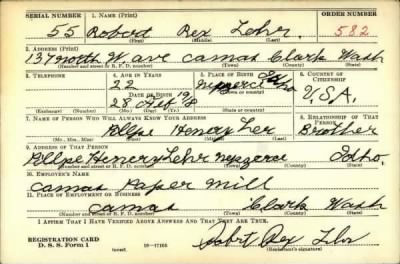 SERIAL NUMBER 1. NAME (Print) ORDER NUMBER
55 Robert Rex Lehr 582
(First) (Middle) (Last)
2. ADDRESS (Print)
137 North W. ave Camas Clark Wash
(Number and street or R. F. D. number) (Town) (County) (State)
3. TELEPHONE 4. AGE IN YEARS 5. PLACE OF BIRTH 6. COUNTRY OF CITIZENSHIP
22 Nezperce Idho U.S.A.
DATE OF BIRTH
28 1918
(Exchange) (Number) (Mo.) (Day) (Yr.) (State or country)
7. NAME OF PERSON WHO WILL ALWAYS KNOW YOUR ADDRESS 8. RELATIONSHIP OF THAT PERSON
Henery Ler Brother
(Mr., Mrs., Miss) (First) (Middle) (Last)
9. ADDRESS OF THAT PERSON
Henery Lehr Nezperce Idho.
(Number and street or R. F. D. number) (Town) (County) (State)
10. EMPLOYER'S NAME
Camas Paper Mill
11. PLACE OF EMPLOYMENT OR BUSINESS
Camas Clark Wash
(Number and street or R. F. D. number) (Town) (County) (State)
I AFFIRM THAT I HAVE VERIFIED ABOVE ANSWERS AND THAT THEY ARE TRUE.
REGISTRATION CARD
D. S. S. Form 1 16-17105 Robert Rex Lehr
(over) (Registrant's signature)